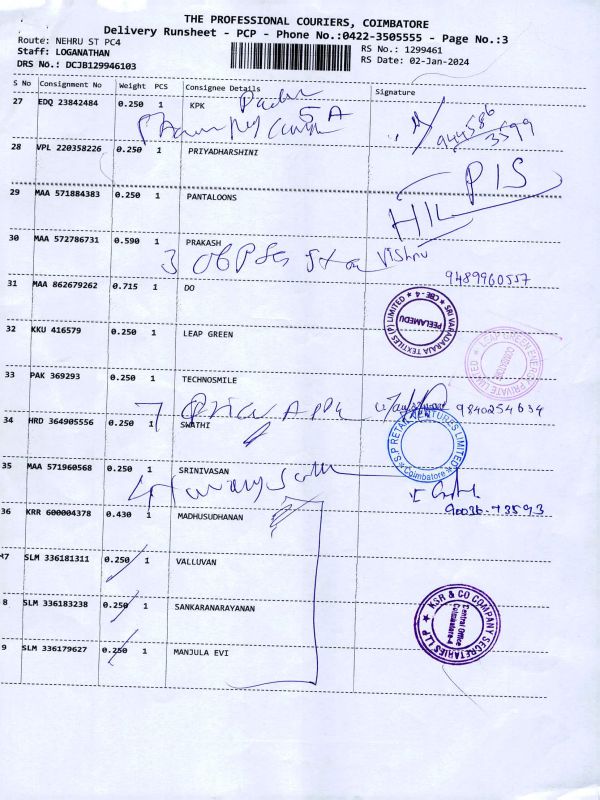 THE PROFESSIONAL COURIERS, COIMBATORE
Delivery Runsheet - PCP - Phone No.:0422-3505555 - Page No.:3
Route: NEHRU ST PC4 RS No.: 1299461
Staff: LOGANATHAN RS Date: 02-Jan-2024
DRS No.: DCJB129946103
S No Consignment No Weight PCS Consignee Details Signature
27 EDQ 23842484 0.250 1 KPK
5 A
944586
3599
28 VPL 220358226 0.250 1 PRIYADHARSHINI
PIS
29 MAA 571884383 0.250 1 PANTALOONS
HIL
30 MAA 572786731 0.590 1 PRAKASH
3 Vishnu
9489960557
31 MAA 862679262 0.715 1 DO
SRI VARADARAJA TEXTILES (P) LIMITED ★ CBE - 4 ★
PEELAMEDU
32 KKU 416579 0.250 1 LEAP GREEN
LEAP GREEN ENERGY PRIVATE LIMITED
COIMBATORE
33 PAK 369293 0.250 1 TECHNOSMILE
7 9840254634
34 HRD 364905556 0.250 1 SWATHI
S.P RETAIL VENTURES LIMITED
★ Coimbatore ★
35 MAA 571960568 0.250 1 SRINIVASAN
4
90036-73593
36 KRR 600004378 0.430 1 MADHUSUDHANAN
47 SLM 336181311 0.250 1 VALLUVAN
8 SLM 336183238 0.250 1 SANKARANARAYANAN
KSR & CO COMPANY SECRETARIES LLP ★
Central Office
Coimbatore-4
9 SLM 336179627 0.250 1 MANJULA EVI